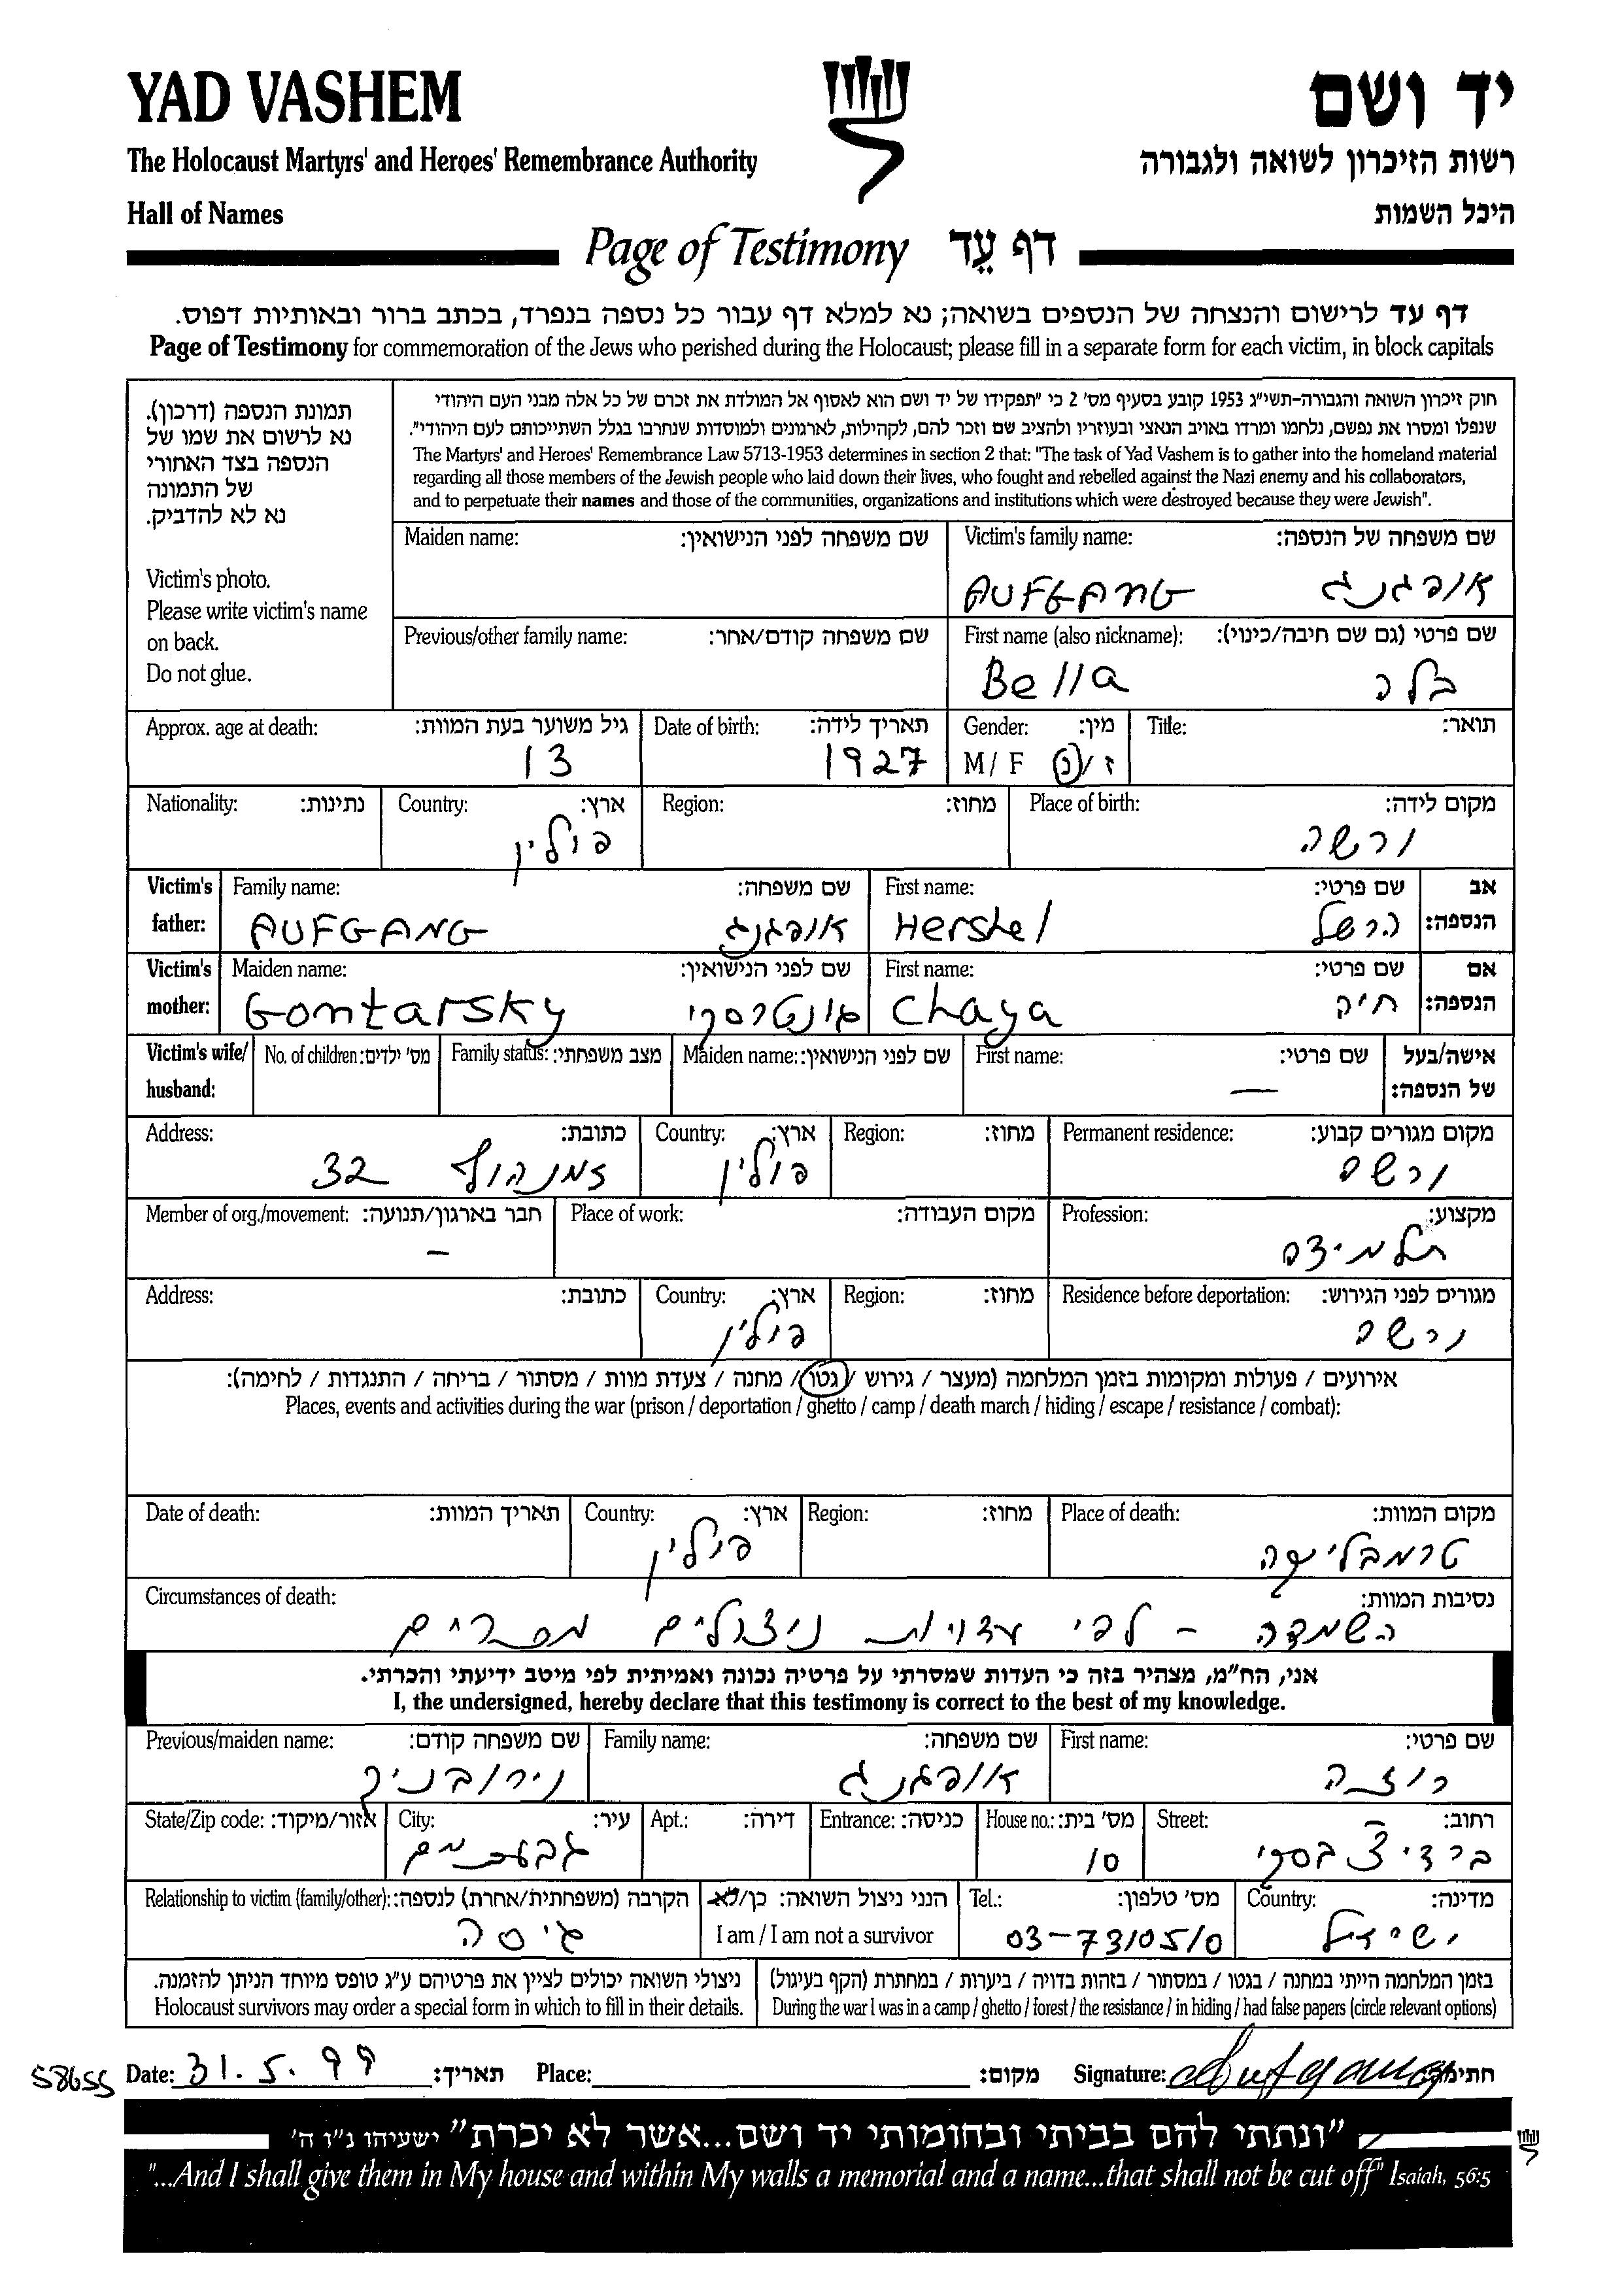 YAD VASHEM
יד ושם
The Holocaust Martyrs' and Heroes' Remembrance Authority
רשות הזיכרון לשואה ולגבורה
Hall of Names
היכל השמות
Page of Testimony דף עֵד
דף עד לרישום והנצחה של הנספים בשואה; נא למלא דף עבור כל נספה בנפרד, בכתב ברור ובאותיות דפוס.
Page of Testimony for commemoration of the Jews who perished during the Holocaust; please fill in a separate form for each victim, in block capitals
תמונת הנספה (דרכון).
נא לרשום את שמו של
הנספה בצד האחורי
של התמונה
נא לא להדביק.
Victim's photo.
Please write victim's name
on back.
Do not glue.
חוק זיכרון השואה והגבורה-תשי"ג 1953 קובע בסעיף מס' 2 כי "תפקידו של יד ושם הוא לאסוף אל המולדת את זכרם של כל אלה מבני העם היהודי
שנפלו ומסרו את נפשם, נלחמו ומרדו באויב הנאצי ובעוזריו ולהציב שם וזכר להם, לקהילות, לארגונים ולמוסדות שנחרבו בגלל השתייכותם לעם היהודי".
The Martyrs' and Heroes' Remembrance Law 5713-1953 determines in section 2 that: "The task of Yad Vashem is to gather into the homeland material
regarding all those members of the Jewish people who laid down their lives, who fought and rebelled against the Nazi enemy and his collaborators,
and to perpetuate their names and those of the communities, organizations and institutions which were destroyed because they were Jewish".
Maiden name: שם משפחה לפני הנישואין:
Victim's family name: שם משפחה של הנספה:
AUFGANG אופגנג
Previous/other family name: שם משפחה קודם/אחר:
First name (also nickname): שם פרטי (גם שם חיבה/כינוי):
Bella בלה
Approx. age at death: גיל משוער בעת המוות:
13
Date of birth: תאריך לידה:
1927
Gender: מין:
M / F ז / נ
Title: תואר:
Nationality: נתינות:
Country: ארץ:
פולין
Region: מחוז:
Place of birth: מקום לידה:
ורשה
Victim's father:
Family name: שם משפחה:
AUFGANG אופגנג
First name: שם פרטי:
Hershel הרשל
אב הנספה:
Victim's mother:
Maiden name: שם לפני הנישואין:
Gontarsky גונטרסקי
First name: שם פרטי:
Chaya חיה
אם הנספה:
Victim's wife/ husband:
No. of children: מס' ילדים:
Family status: מצב משפחתי:
Maiden name: שם לפני הנישואין:
First name: שם פרטי:
—
אישה/בעל של הנספה:
Address: כתובת:
זמנהוף 32
Country: ארץ:
פולין
Region: מחוז:
Permanent residence: מקום מגורים קבוע:
ורשה
Member of org./movement: חבר בארגון/תנועה:
–
Place of work: מקום העבודה:
Profession: מקצוע:
תלמידה
Address: כתובת:
Country: ארץ:
פולין
Region: מחוז:
Residence before deportation: מגורים לפני הגירוש:
ורשה
אירועים / פעולות ומקומות בזמן המלחמה (מעצר / גירוש / גטו / מחנה / צעדת מוות / מסתור / בריחה / התנגדות / לחימה):
Places, events and activities during the war (prison / deportation / ghetto / camp / death march / hiding / escape / resistance / combat):
Date of death: תאריך המוות:
Country: ארץ:
פולין
Region: מחוז:
Place of death: מקום המוות:
טרמבלינקה
Circumstances of death: נסיבות המוות:
השמדה – לפי עדויות ניצולים מספרים
אני, הח"מ, מצהיר בזה כי העדות שמסרתי על פרטיה נכונה ואמיתית לפי מיטב ידיעתי והכרתי.
I, the undersigned, hereby declare that this testimony is correct to the best of my knowledge.
Previous/maiden name: שם משפחה קודם:
Family name: שם משפחה:
אופגנג
First name: שם פרטי:
רוזה
State/Zip code: אזור/מיקוד:
City: עיר:
גבעתיים
Apt.: דירה:
Entrance: כניסה:
House no.: מס' בית:
10
Street: רחוב:
ברדיצבסקי
Relationship to victim (family/other): הקרבה (משפחתית/אחרת) לנספה:
גיסה
הנני ניצול השואה: כן/לא
I am / I am not a survivor
Tel.: מס' טלפון:
03-7310510
Country: מדינה:
ישראל
ניצולי השואה יכולים לציין את פרטיהם ע"ג טופס מיוחד הניתן להזמנה.
Holocaust survivors may order a special form in which to fill in their details.
בזמן המלחמה הייתי במחנה / בגטו / במסתור / בזהות בדויה / ביערות / במחתרת (הקף בעיגול)
During the war I was in a camp / ghetto / forest / the resistance / in hiding / had false papers (circle relevant options)
58655 Date: 31.5.99 תאריך: Place: מקום: Signature: Aufgang חתימה:
"ונתתי להם בביתי ובחומותי יד ושם...אשר לא יכרת" ישעיהו נ"ו ה'
"...And I shall give them in My house and within My walls a memorial and a name...that shall not be cut off" Isaiah, 56:5